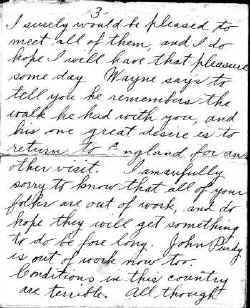 3-
I surely would be pleased to
meet all of them, and I do
hope I will have that pleasure
some day. Wayne says to
tell you he remembers the
walk he had with you, and
his one great desire is to
return to England for an
other visit. I am awfully
sorry to know that all of your
folks are out of work, and do
hope they will get something
to do be fore long. John Purdy
is out of work now too.
Conditions in this country
are terrible. All though